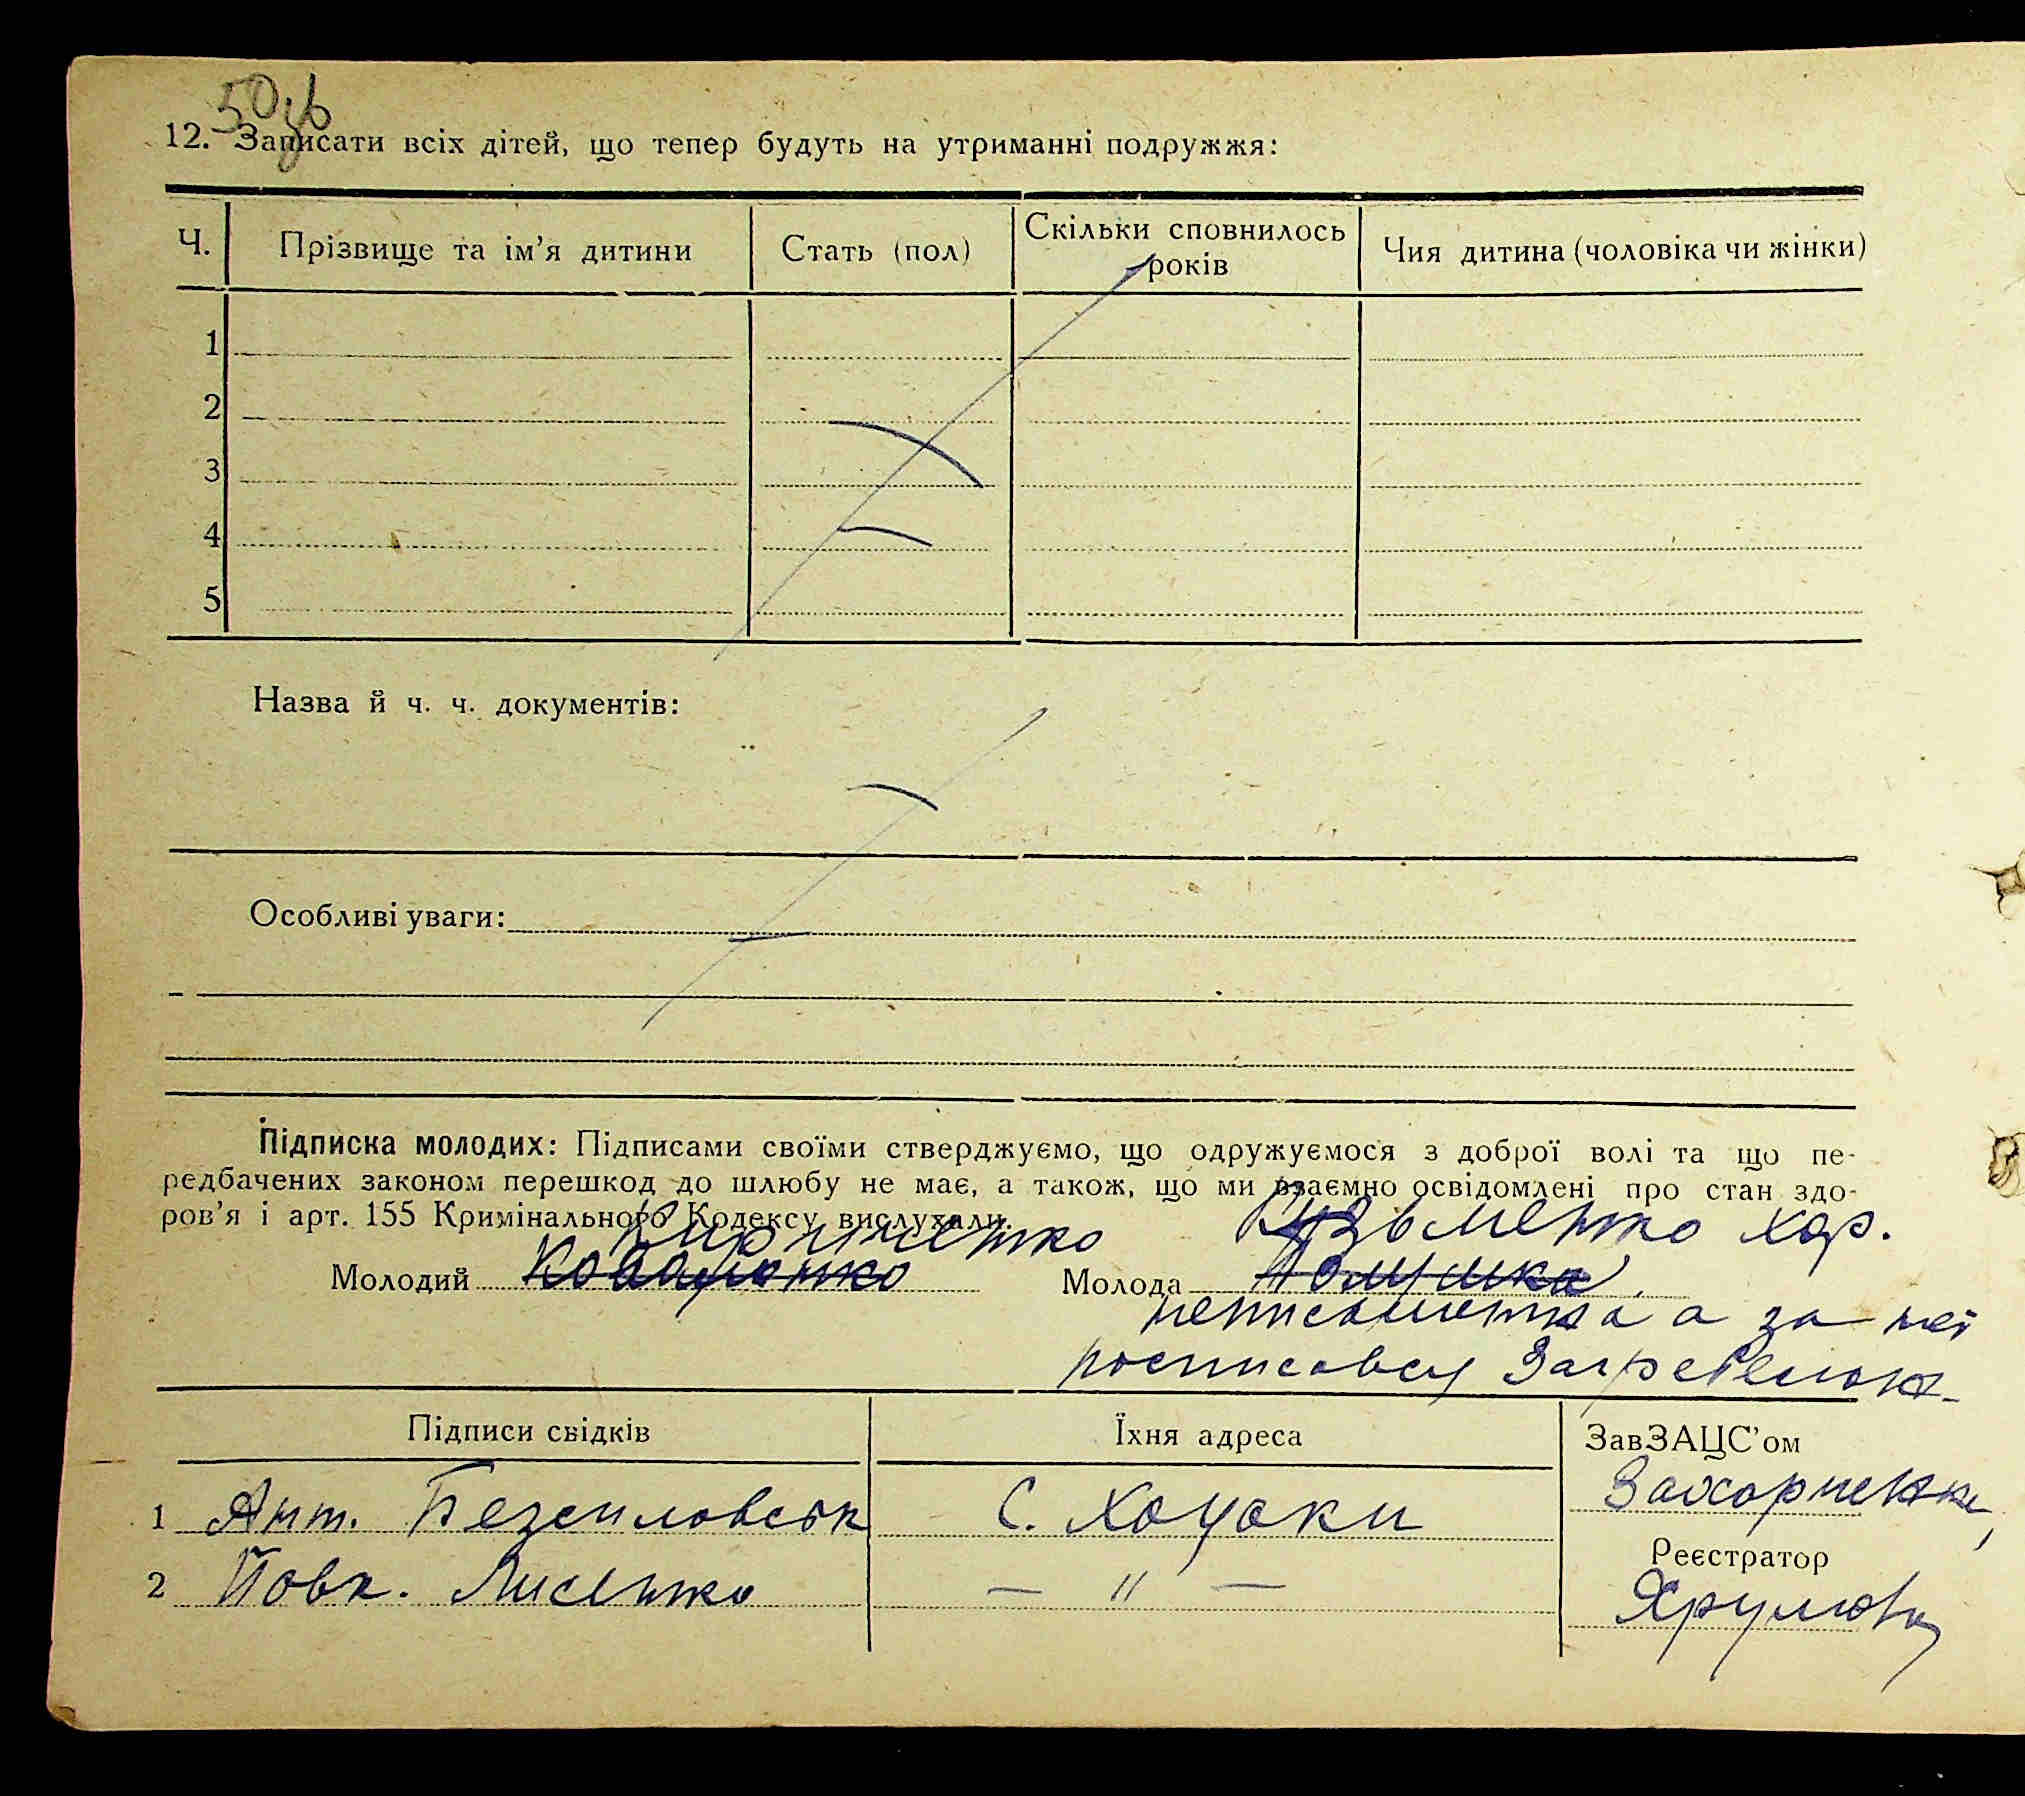 50зв
12. Записати всіх дітей, що тепер будуть на утриманні подружжя:
Ч. Прізвище та ім'я дитини Стать (пол) Скільки сповнилось років Чия дитина (чоловіка чи жінки)
1
2
3
4
5
Назва й ч. ч. документів:
Особливі уваги:
Підписка молодих: Підписами своїми стверджуємо, що одружуємося з доброї волі та що пе-
редбачених законом перешкод до шлюбу не має, а також, що ми взаємно освідомлені про стан здо-
ров'я і арт. 155 Кримінального Кодексу вислухали.
Кузьменко хар.
Молодий Молода
неписьменна а за неї
росписовсу
Підписи свідків Їхня адреса ЗавЗАЦС'ом
1 Ант. С. Хоцки
Реєстратор
2 Повк. Лисенко — " —